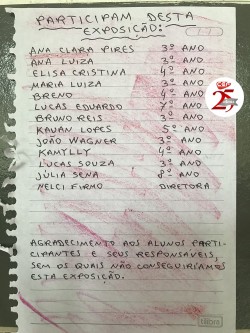 PARTICIPAM DESTA
EXPOSIÇÃO:
ANA CLARA PIRES 3º ANO
ANA LUIZA 3º ANO
ELISA CRISTINA 4º ANO
MARIA LUIZA 3º ANO
BRENO 4º ANO
LUCAS EDUARDO 7º ANO
BRUNO REIS 3º ANO
KAUÃN LOPES 5º ANO
JOÃO WAGNER 3º ANO
KAMYLLY 4º ANO
LUCAS SOUZA 3º ANO
JÚLIA SENA 8º ANO
NELCI FIRMO DIRETORA
AGRADECIMENTO AOS ALUNOS PARTI-
CIPANTES E SEUS RESPONSÁVEIS,
SEM OS QUAIS NÃO CONSEGUIRÍAMOS
ESTA EXPOSIÇÃO.
25